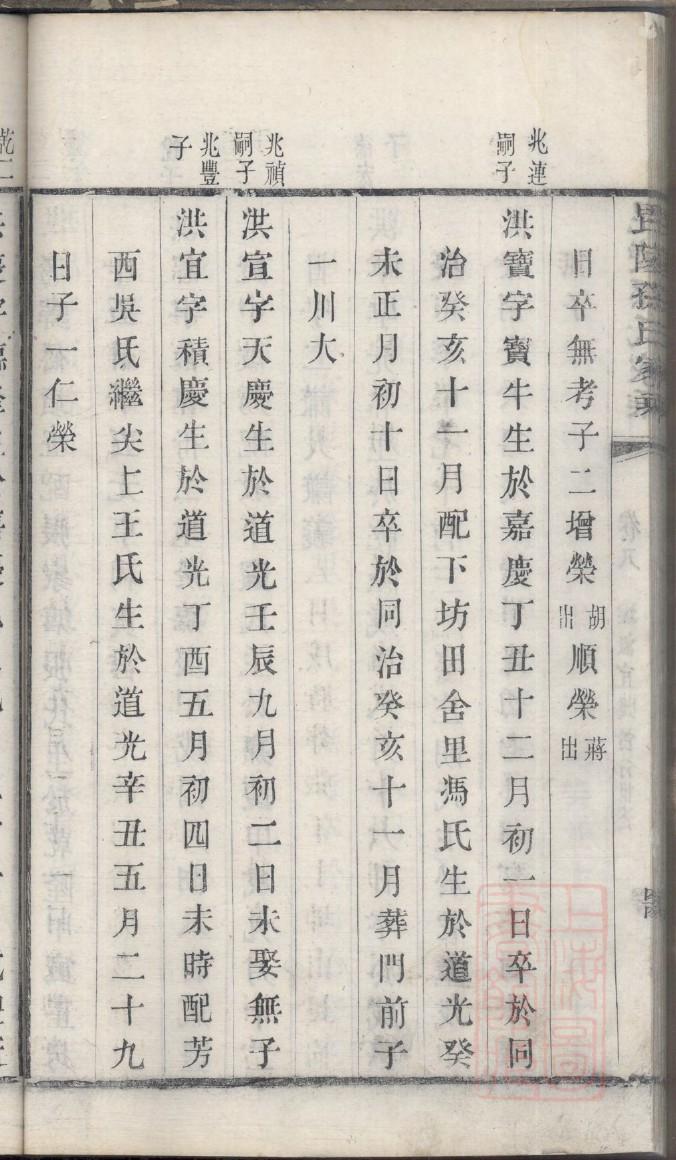 毘陵孫氏家乘
日卒無考子二增榮胡出順榮蔣出
兆連嗣子
洪寶字寶牛生於嘉慶丁丑十二月初一日卒於同
治癸亥十一月配下坊田舍里馮氏生於道光癸
未正月初十日卒於同治癸亥十一月葬門前子
一川大
兆禎嗣子
洪宣字天慶生於道光壬辰九月初二日未娶無子
兆豐子
洪宜字積慶生於道光丁酉五月初四日未時配芳
西吳氏繼尖上王氏生於道光辛丑五月二十九
日子一仁榮